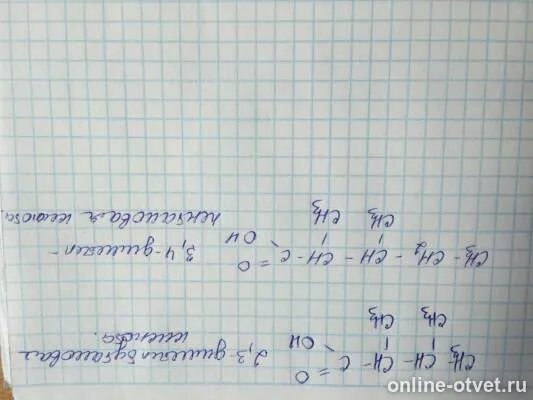 CH₃ - CH - CH - C = O
OH
CH₃ CH₃
2,3-диметилбутановая
кислота.
CH₃ - CH₂ - CH - CH - C = O
OH
CH₃ CH₃
3,4-диметил-
пентановая кислота
online-otvet.ru